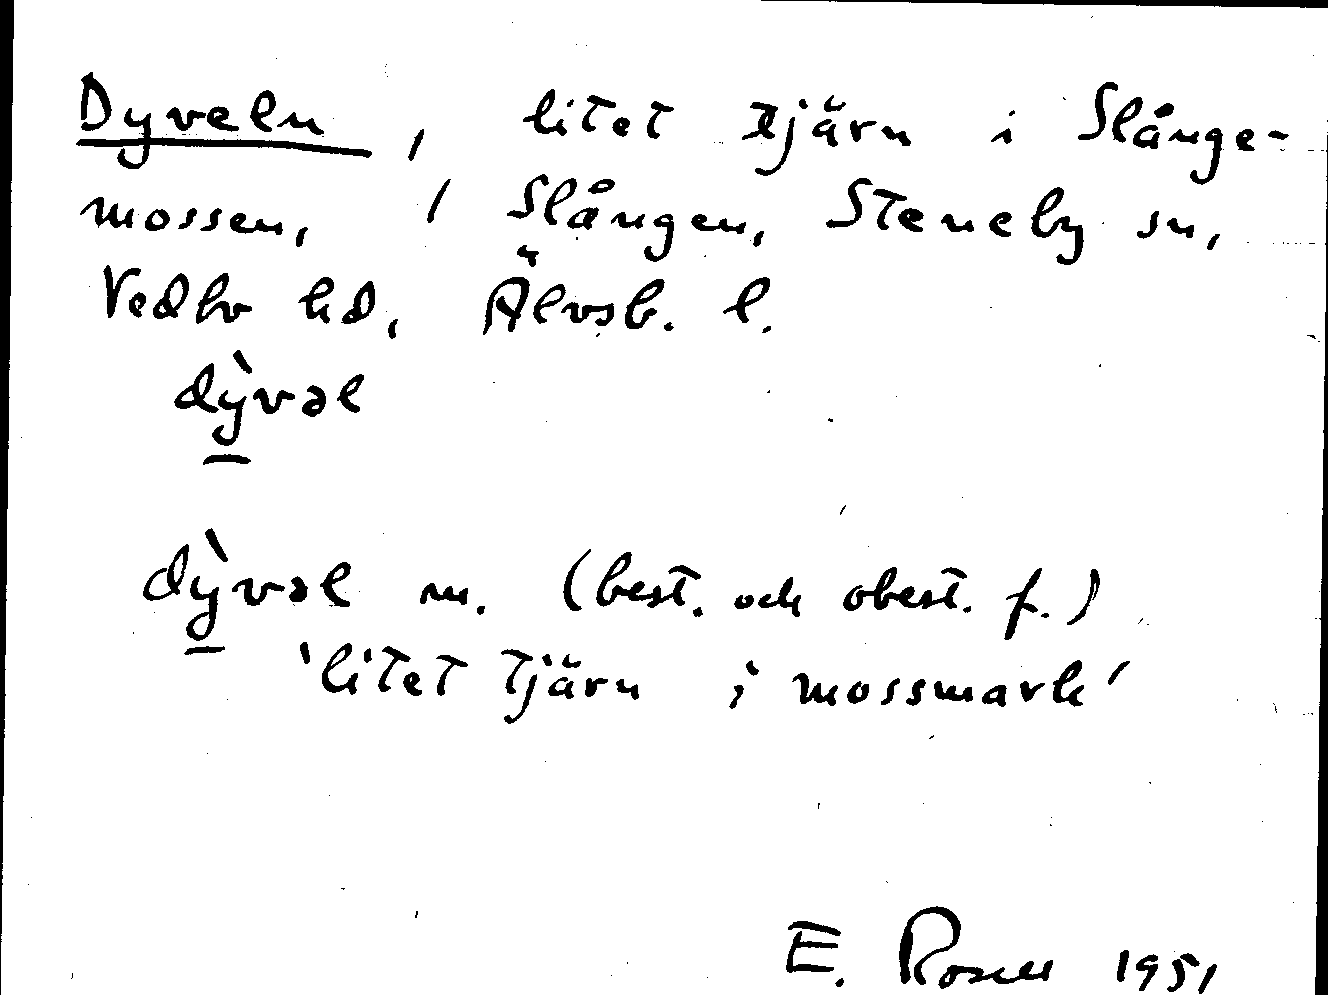 Dyveln, litet tjärn i Slånge-
mossen, / Slången, Steneby sn,
Vedbo hd, Älvsb. l.
dỳ̱vəl
dỳ̱vəl m. (best. och obest. f.)
'litet tjärn i mossmark'
E. Rosell 1951